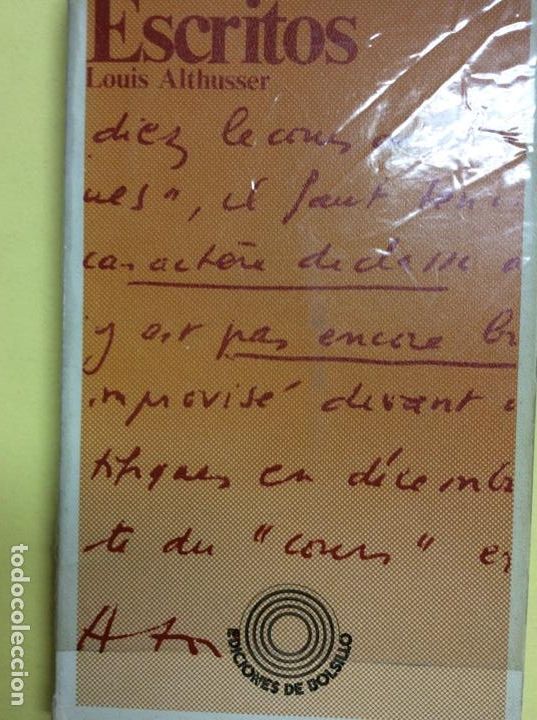 Escritos
Louis Althusser
diez le cours
ues", il faut
caractère de classe
y est pas encore
improvisé devant
tifiques en décembre
te du "cours" en
EDICIONES DE BOLSILLO
todocoleccion